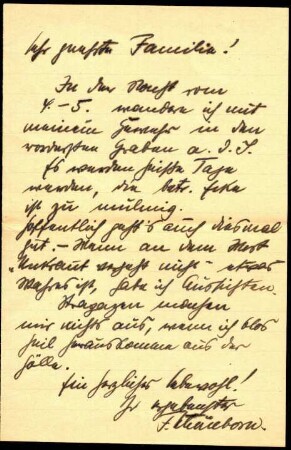 Sehr geehrte Familie!
In der Nacht vom
4.–5. wandere ich mit
meinem Gewehr in den
vordersten Graben a. d. S.
Es werden heiße Tage
werden, die betr. Ecke
ist zu mulmig.
Hoffentlich geht's auch diesmal
gut. – Wenn an dem Wort
„Unkraut vergeht nicht – etwas
Wahres ist, habe ich Aussichten.
Strapazen machen
mir nichts aus, wenn ich blos
heil herauskomme aus der
Hölle.
Ein herzliches Lebewohl!
Ihr ergebenster